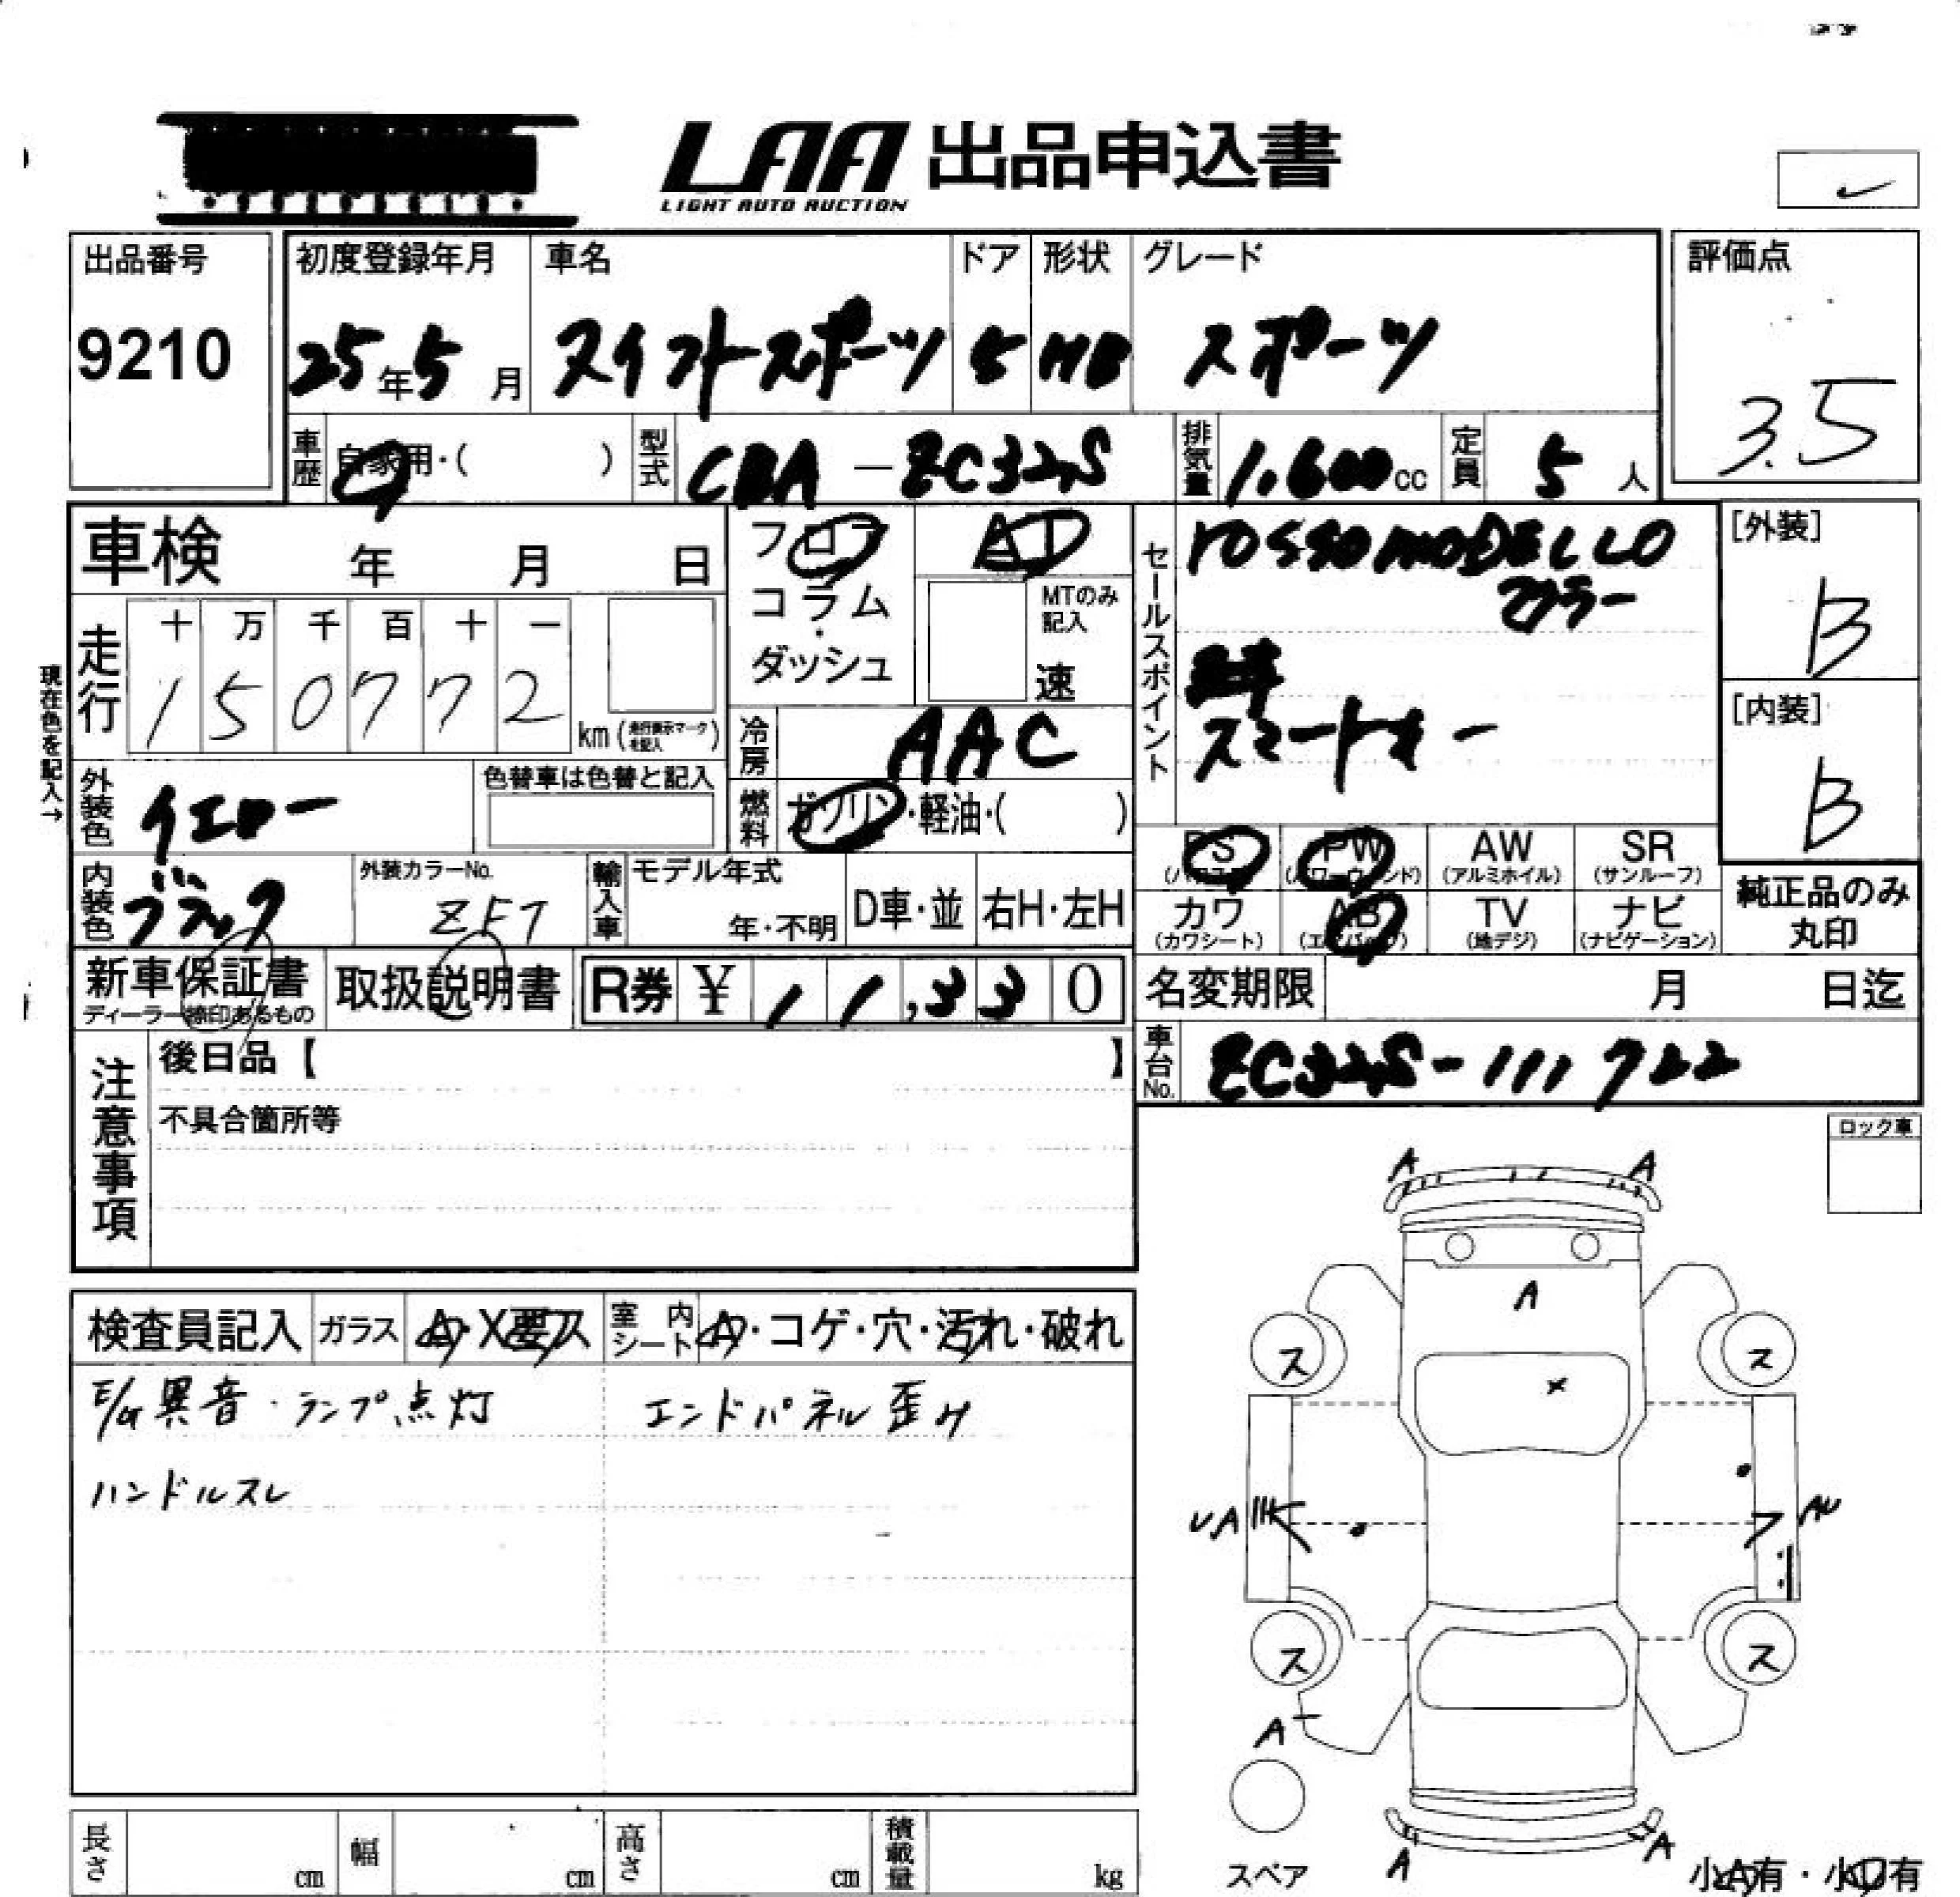 LAA 出品申込書
LIGHT AUTO AUCTION
出品番号 初度登録年月 車名 ドア 形状 グレード 評価点
9210 25年5月 スイフトスポーツ 5 HB スポーツ 3.5
車歴 自家用・( ) 型式 CBA-ZC32S 排気量 1,600cc 定員 5人
車検 年 月 日
フロア AT
コラム・ダッシュ MTのみ記入 速
セールスポイント rosso MODELLO
マフラー
スマートキー
[外装] B
[内装] B
走行 十 万 千 百 十 一
1 5 0 7 7 2 km (走行表示マークを記入)
現在色を記入→
冷房 AAC
外装色 イエロー 色替車は色替と記入
燃料 ガソリン・軽油・( )
内装色 ブラック 外装カラーNo. ZFT
輸入車 モデル年式 年・不明 D車・並 右H・左H
PS PW (パワーウィンド) AW (アルミホイル) SR (サンルーフ)
カワ (カワシート) AB (エアバッグ) TV (地デジ) ナビ (ナビゲーション)
純正品のみ丸印
新車保証書 ディーラー捺印あるもの 取扱説明書 R券 ¥ 11,330
名変期限 月 日迄
車台No. ZC32S-111722
注意事項 後日品【 】
不具合箇所等
ロック車
検査員記入 ガラス A・X要ス 室内シート A・コゲ・穴・汚れ・破れ
E/G異音・ランプ点灯 エンドパネル歪み
ハンドルスレ
A A
A
ス ス
×
UA AU
ス ス
A
A A
スペア 小A有・小U有
長さ cm 幅 cm 高さ cm 積載量 kg